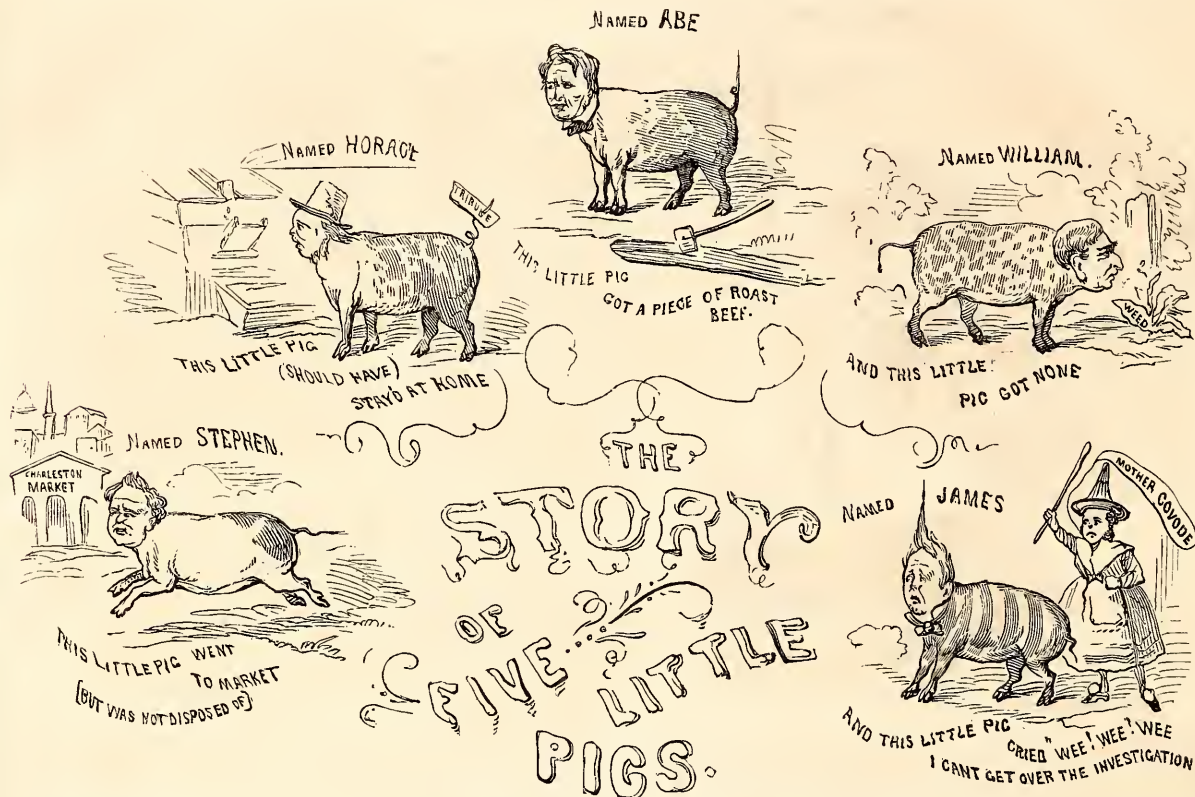 NAMED ABE
THIS LITTLE PIG
GOT A PIECE OF ROAST
BEEF.
NAMED HORACE
TRIBUNE
THIS LITTLE PIG
(SHOULD HAVE)
STAY'D AT HOME
NAMED WILLIAM.
WEED
AND THIS LITTLE
PIG GOT NONE
NAMED STEPHEN.
CHARLESTON
MARKET
THIS LITTLE PIG WENT
TO MARKET
[BUT WAS NOT DISPOSED OF]
THE
STORY
OF
FIVE
LITTLE
PIGS.
NAMED JAMES
MOTHER COVODE
AND THIS LITTLE PIG
CRIED "WEE! WEE! WEE
I CANT GET OVER THE INVESTIGATION